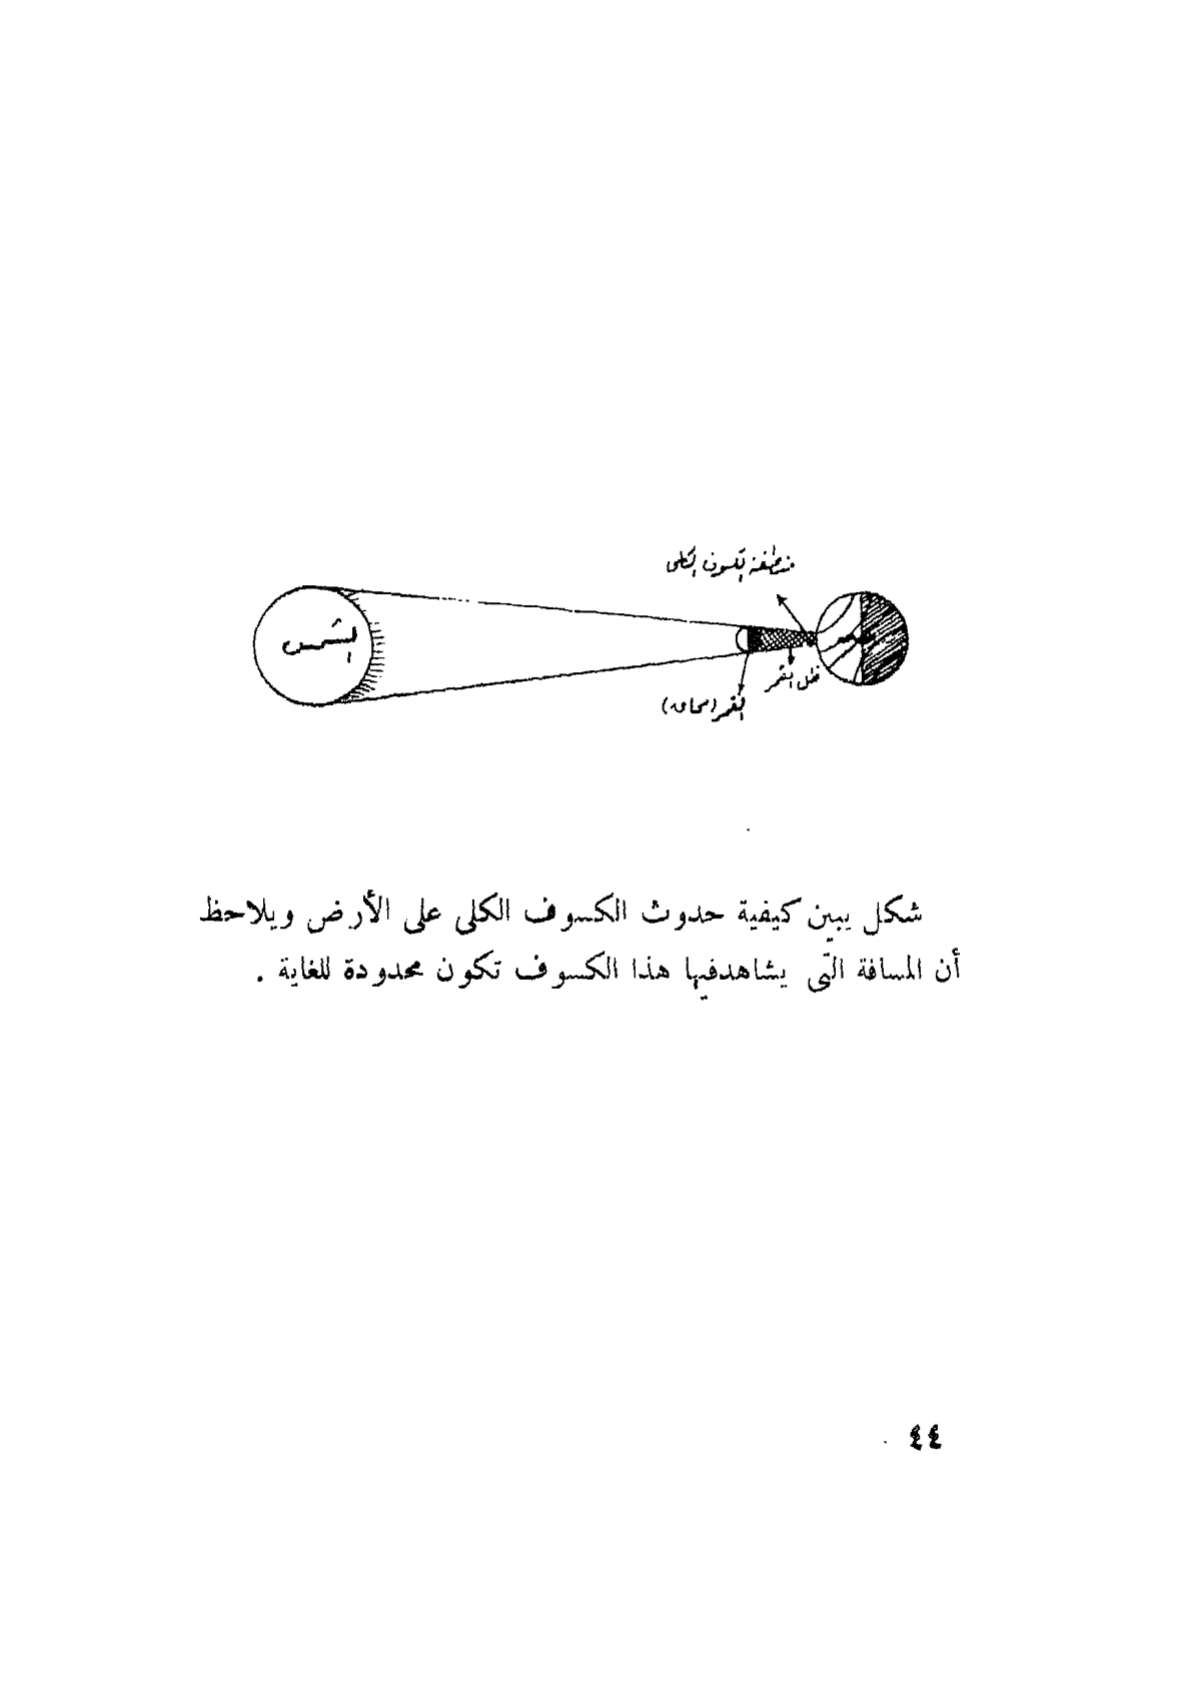 منطقة الكسوف الكلى
الشمس
ظل القمر
القمر (محاق)
شكل يبين كيفية حدوث الكسوف الكلى على الأرض ويلاحظ
أن المسافة التى يشاهدفيها هذا الكسوف تكون محدودة للغاية .
٤٤